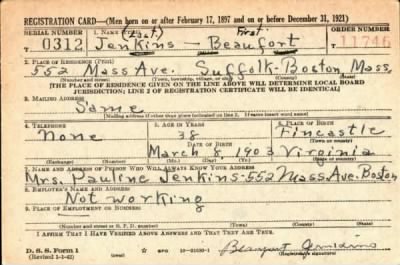 REGISTRATION CARD—(Men born on or after February 17, 1897 and on or before December 31, 1921)
SERIAL NUMBER 1. NAME (Print) ORDER NUMBER
0312 Jenkins — Beaufort 11746
(Last) First
2. PLACE OF RESIDENCE (Print)
552 Mass Ave. Suffolk-Boston Mass.
(Number and street) (Town, township, village, or city) (County) (State)
[THE PLACE OF RESIDENCE GIVEN ON THE LINE ABOVE WILL DETERMINE LOCAL BOARD
JURISDICTION; LINE 2 OF REGISTRATION CERTIFICATE WILL BE IDENTICAL]
3. MAILING ADDRESS
Same
[Mailing address if other than place indicated on line 2. If same insert word same]
4. TELEPHONE 5. AGE IN YEARS 6. PLACE OF BIRTH
None 38 Fincastle
DATE OF BIRTH (Town or county)
March 8 1903 Virginia
(Exchange) (Number) (Mo.) (Day) (Yr.) (State or country)
7. NAME AND ADDRESS OF PERSON WHO WILL ALWAYS KNOW YOUR ADDRESS
Mrs. Pauline Jenkins-552 Mass Ave. Boston
8. EMPLOYER'S NAME AND ADDRESS
Not working
9. PLACE OF EMPLOYMENT OR BUSINESS
(Number and street or R. F. D. number) (Town) (County) (State)
I AFFIRM THAT I HAVE VERIFIED ABOVE ANSWERS AND THAT THEY ARE TRUE.
D. S. S. Form 1
(Revised 1-1-42) (over) GPO 16—21630-1 Beaufort Jenkins